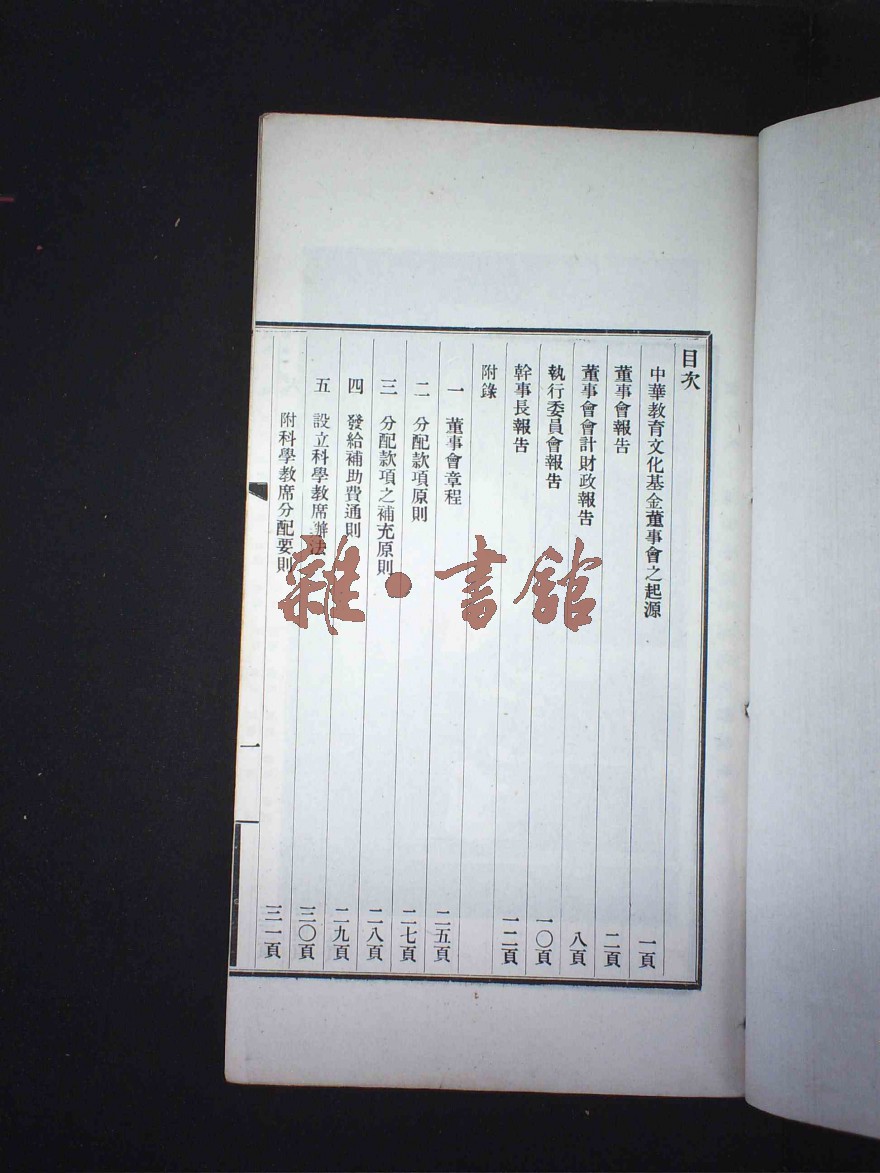 目次
中華教育文化基金董事會之起源 一頁
董事會報告 二頁
董事會會計財政報告 八頁
執行委員會報告 一〇頁
幹事長報告 一二頁
附錄
一 董事會章程 二五頁
二 分配款項原則 二七頁
三 分配款項之補充原則 二八頁
四 發給補助費通則 二九頁
五 設立科學教席辦法 三〇頁
附科學教席分配要則 三一頁
一
雜·書館